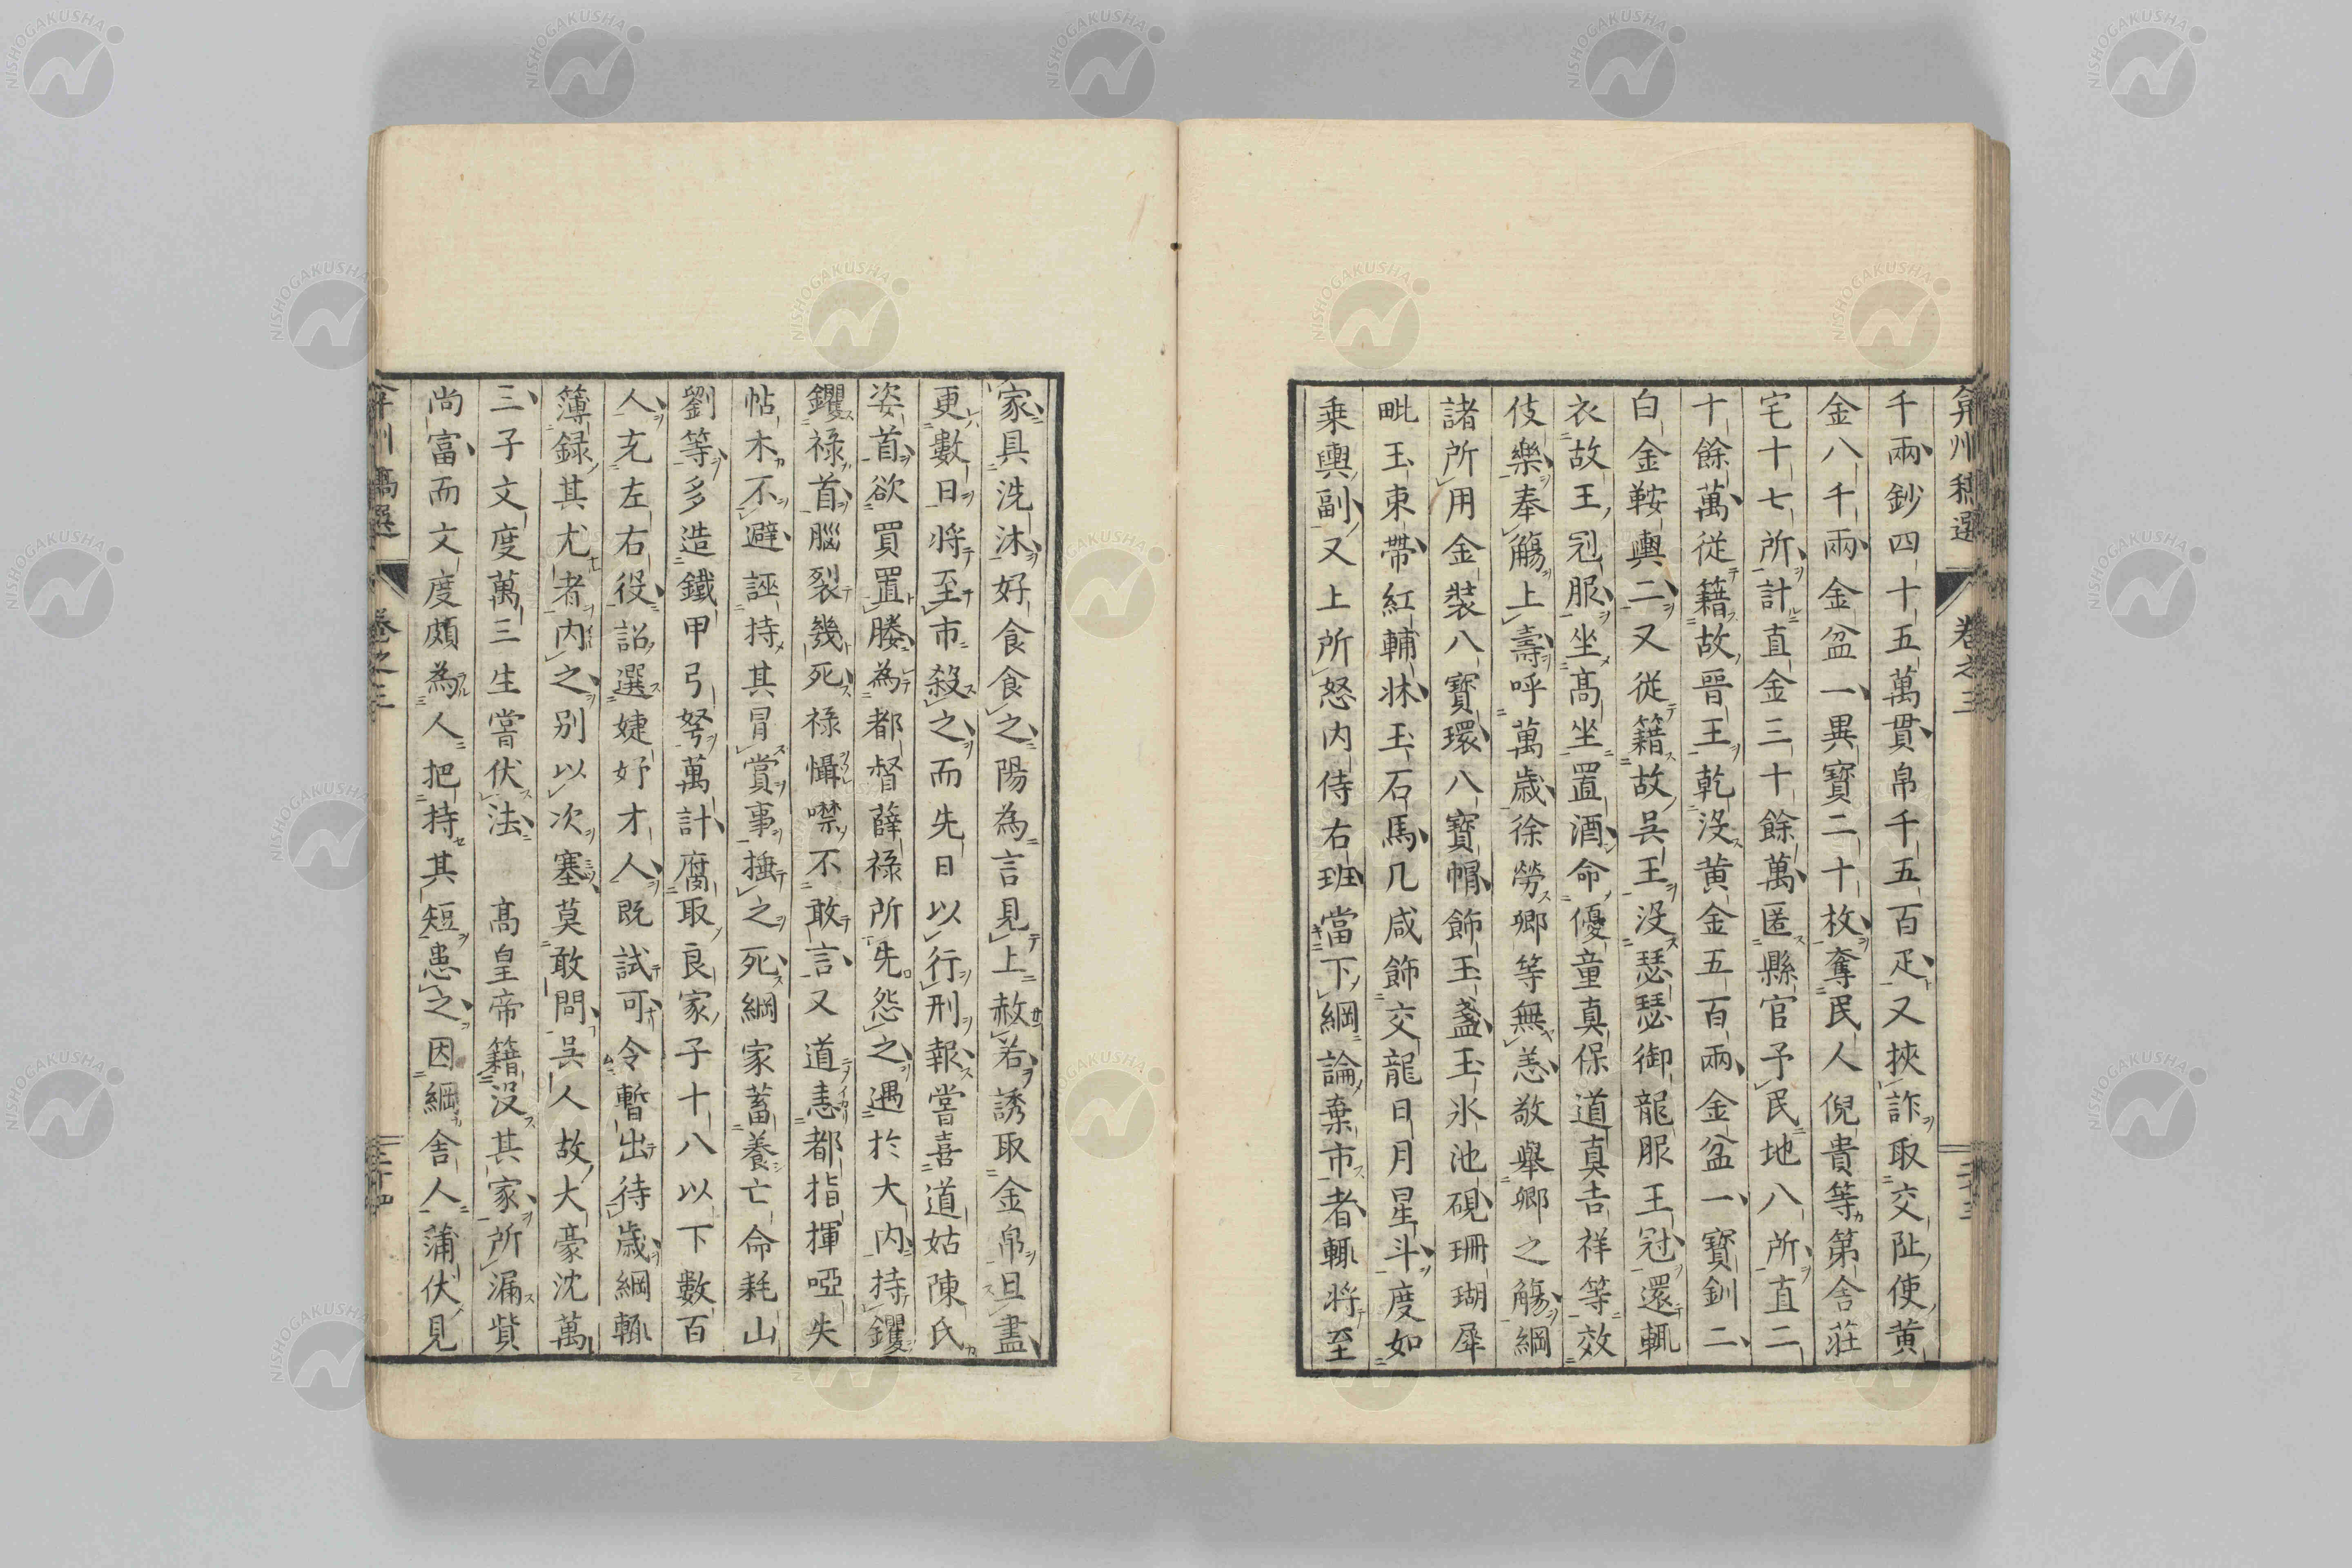 弇州稿選 卷之三 二十三
千兩鈔四十五萬貫帛千五百疋又挾詐取交阯使黄
金八千兩金盆一異寳二十枚奪民人倪貴等第舎莊
宅十七所計直金三十餘萬匿縣官予民地八所直二
十餘萬從籍故晋王乾没黄金五百兩金盆一寳釧二
白金鞍輿二又從籍故呉王没瑟瑟御龍服王冠還輒
衣故王冠服坐髙坐置酒命優童真保道真吉祥等效
伎樂奉觴上壽呼萬歳徐勞卿等無恙敬舉卿之觴綱
諸所用金裝八寳環八寳帽飾玉盞玉氷池硯珊瑚犀
毗玉束帶紅輔牀玉石馬几咸飾交龍日月星斗度如
乗輿副又上所怒内侍右班當下綱論棄市者輒將至
家具洗沐好食食之陽為言見上赦若誘取金帛且盡
更數日將至市殺之而先日以行刑報嘗喜道姑陳氏
姿首欲買置媵為都督薛祿所先怨之遇於大内持钁
钁祿首腦裂幾死祿懾噤不敢言又道恚都指揮啞失
帖木不避誣持其冒賞事捶之死綱家蓄養亡命耗山
劉等多造鐵甲弓弩萬計腐取良家子十八以下數百
人充左右役詔選婕妤才人既試可令暫出待歳綱輒
簿録其尤者内之别以次塞莫敢問呉人故大豪沈萬
三子文度萬三生嘗伏法 髙皇帝籍没其家所漏貲
尚富而文度頗為人把持其短患之因綱舎人蒲伏見
弇州稿選 卷之三 二十四